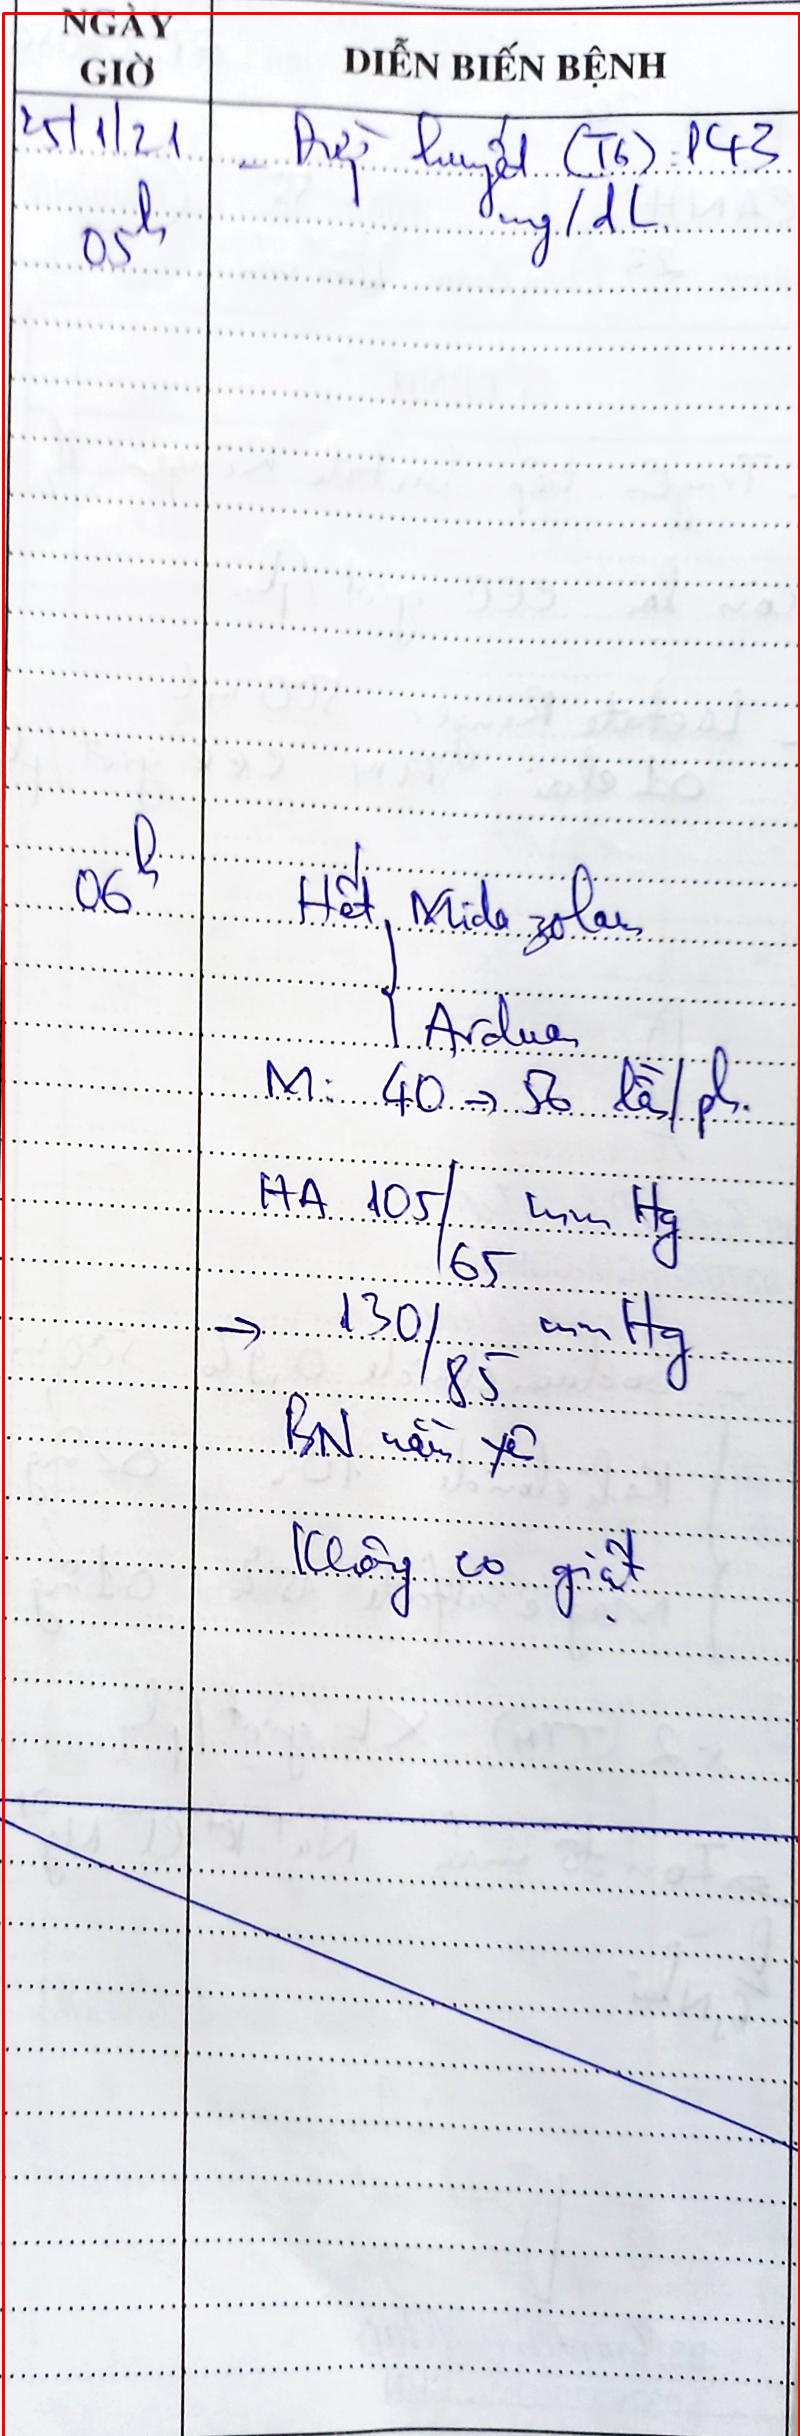 NGÀY GIỜ
DIỄN BIẾN BỆNH
25/1/21 - Đường huyết (T6): 143
05h mg/dL
06h Hết Midazolam
Arduan
M: 40 → 56 lần/ph.
HA 105/65 mmHg
→ 130/85 mmHg
BN nằm yên
Không co giật